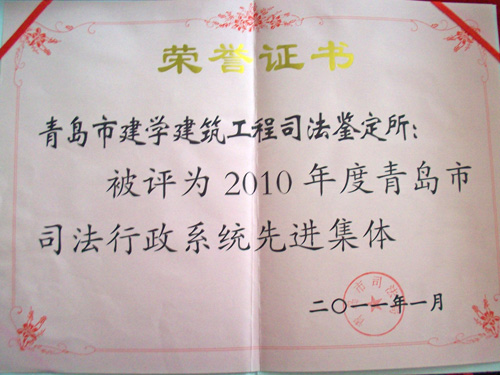 荣誉证书
青岛市建学建筑工程司法鉴定所：
被评为2010年度青岛市
司法行政系统先进集体
青岛市司法局
二〇一一年一月